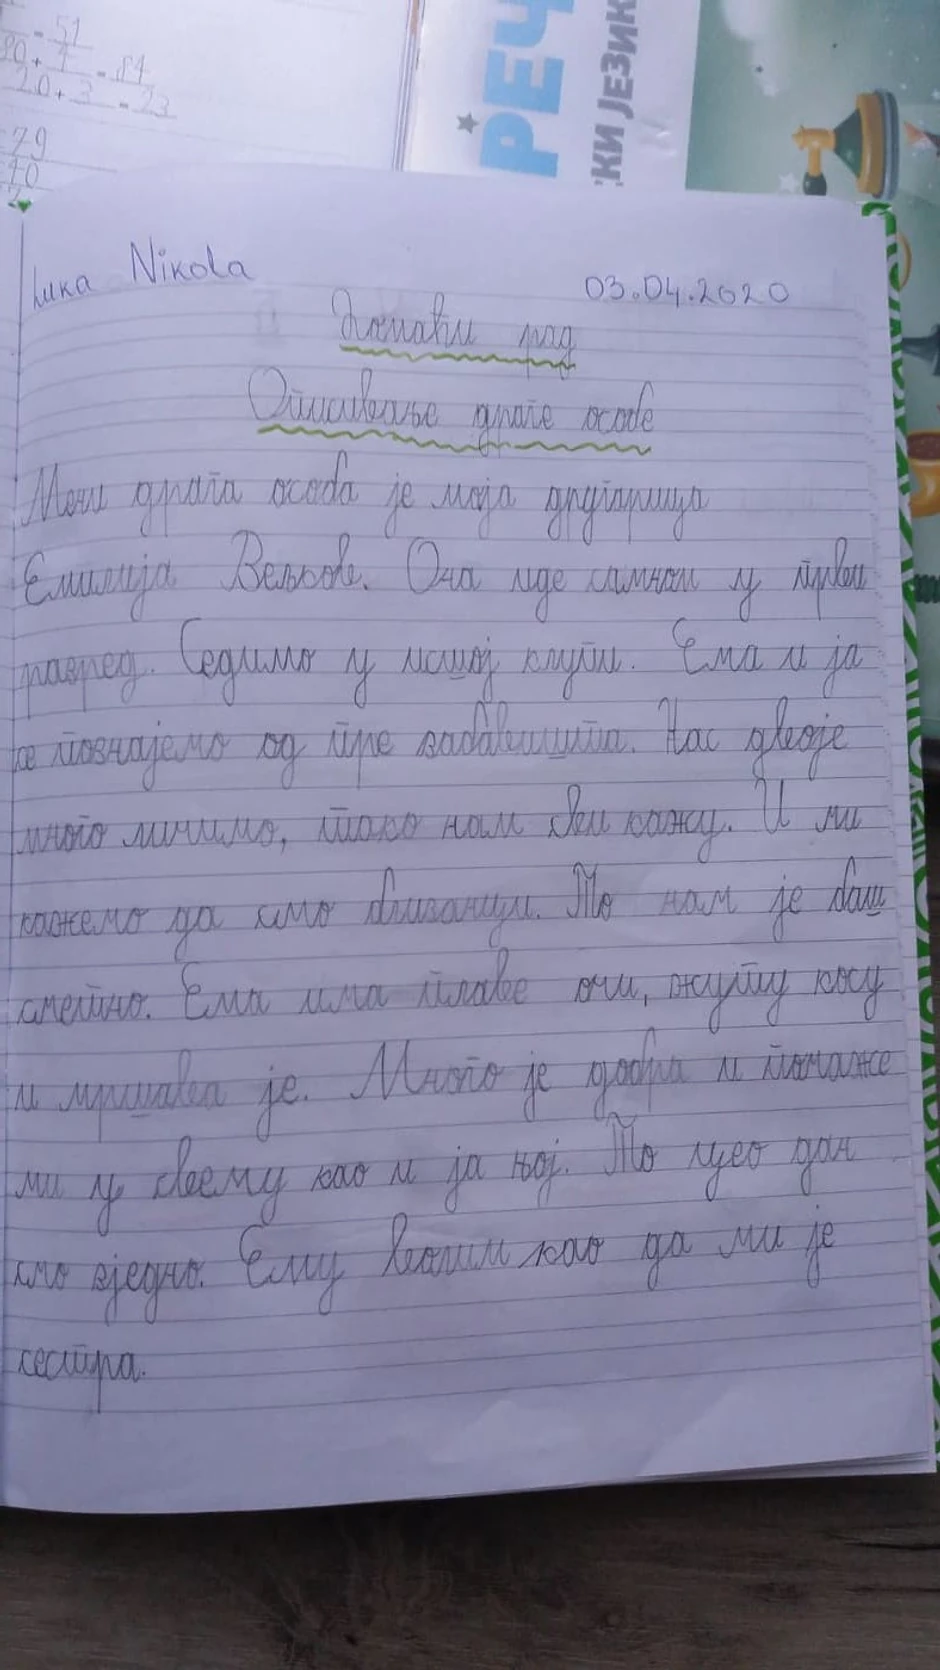 = 51
20 + 3 = 23
79
РЕЧ
КИ ЈЕЗИК
Nikola 03.04.2020
Домаћи рад
Описивање драге особе
Мени драга особа је моја другарица
Емилија Вељков. Она иде самном у први
разред. Седимо у истој клупи. Ема и ја
се познајемо од пре забавишта. Нас двоје
много личимо, тако нам сви кажу. И ми
кажемо да смо близанци. То нам је баш
смешно. Ема има плаве очи, жуту косу
и мршава је. Много је добра и помаже
ми у свему као и ја њој. По цео дан
смо вједно. Ему волим као да ми је
сестра.